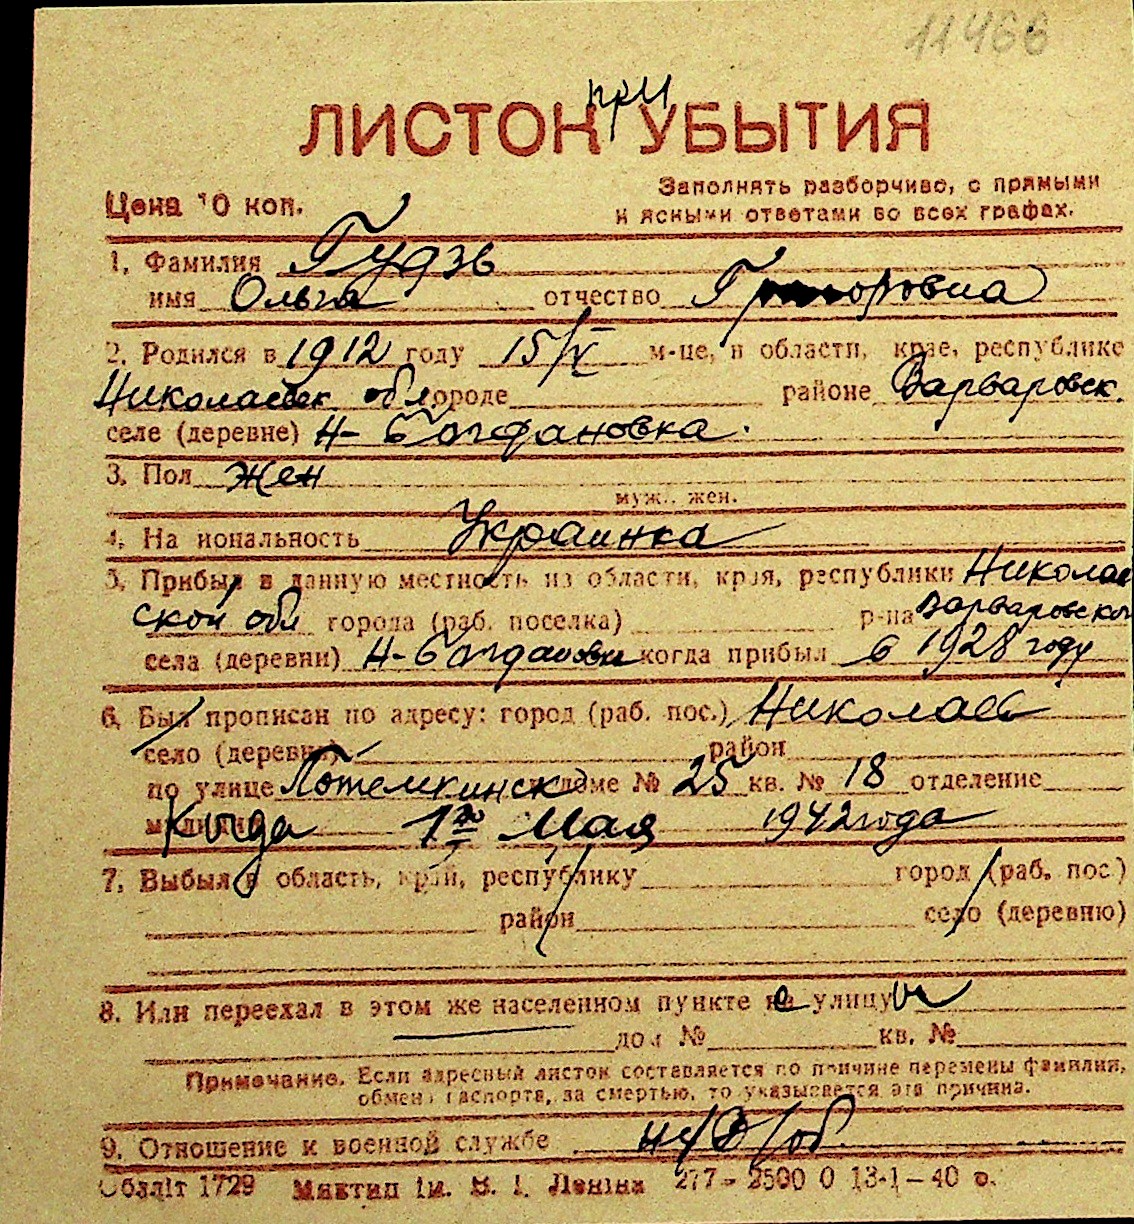 11466
при
ЛИСТОК УБЫТИЯ
Цена 10 коп.
Заполнять разборчиво, с прямыми
и ясными ответами во всех графах.
1. Фамилия Гудзь
имя Ольга отчество Григоровна
2. Родился в 1912 году 15/IV м-це, в области, крае, республике
Николаевск обл городе районе Варваровск.
селе (деревне) Н-Богдановка.
3. Пол Жен
муж., жен.
4. На иональность Украинка
5. Прибыл в данную местность из области, края, республики Николаев
ской обл города (раб. поселка) р-на Варваровского
села (деревни) Н-Богдановки когда прибыл в 1928 году
6. Был прописан по адресу: город (раб. пос.) Николаев
село (деревня) район
по улице Потёмкинск доме № 25 кв. № 18 отделение
милиции Когда 1го Мая 1942 года
7. Выбыл в область, край, республику город (раб. пос.)
район село (деревню)
8. Или переехал в этом же населенном пункте на улицу
дом № кв. №
Примечание. Если адресный листок составляется по причине перемены фамилии,
обмена паспорта, за смертью, то указывается эта причина.
9. Отношение к военной службе н/об
Обліт 1729 Миктип ім. В. І. Леніна 277 - 2500 0 13-1-40 р.